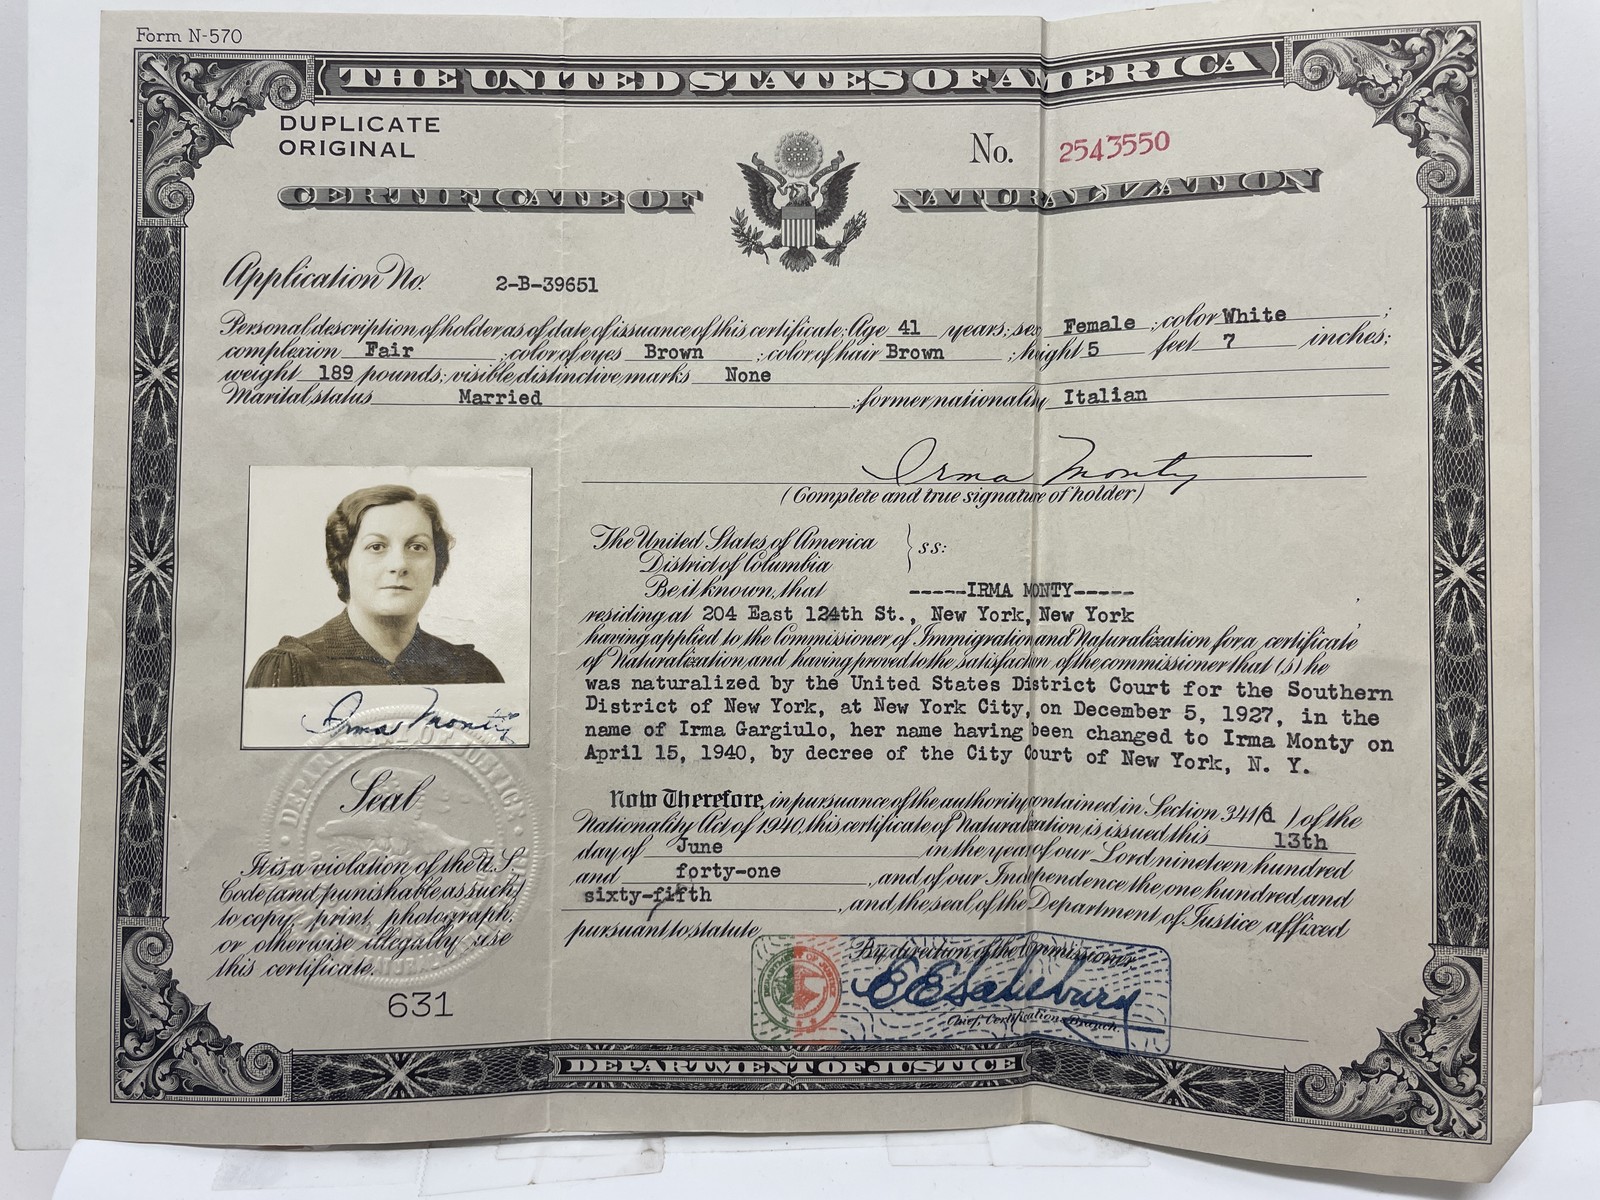 Form N-570
THE UNITED STATES OF AMERICA
DUPLICATE
ORIGINAL
No. 2543550
CERTIFICATE OF NATURALIZATION
Application No. 2-B-39651
Personal description of holder as of date of issuance of this certificate; Age 41 years; sex Female; color White;
complexion Fair; color of eyes Brown; color of hair Brown; height 5 feet 7 inches;
weight 189 pounds; visible distinctive marks None
Marital status Married; former nationality Italian
Irma Monty
(Complete and true signature of holder)
The United States of America
District of Columbia } ss:
Be it known, that -----IRMA MONTY-----
residing at 204 East 124th St., New York, New York
having applied to the Commissioner of Immigration and Naturalization for a certificate
of Naturalization and having proved to the satisfaction of the commissioner that (s)he
was naturalized by the United States District Court for the Southern
District of New York, at New York City, on December 5, 1927, in the
name of Irma Gargiulo, her name having been changed to Irma Monty on
April 15, 1940, by decree of the City Court of New York, N. Y.
Now Therefore, in pursuance of the authority contained in Section 341(d) of the
Nationality Act of 1940, this certificate of Naturalization is issued this 13th
day of June in the year of our Lord nineteen hundred
and forty-one, and of our Independence the one hundred and
sixty-fifth, and the seal of the Department of Justice affixed
pursuant to statute.
By direction of the Commissioner
E E Salisbury
Chief, Certifications Branch.
Irma Monty
Seal
It is a violation of the U.S.
Code (and punishable as such)
to copy, print, photograph,
or otherwise illegally use
this certificate.
631
DEPARTMENT OF JUSTICE